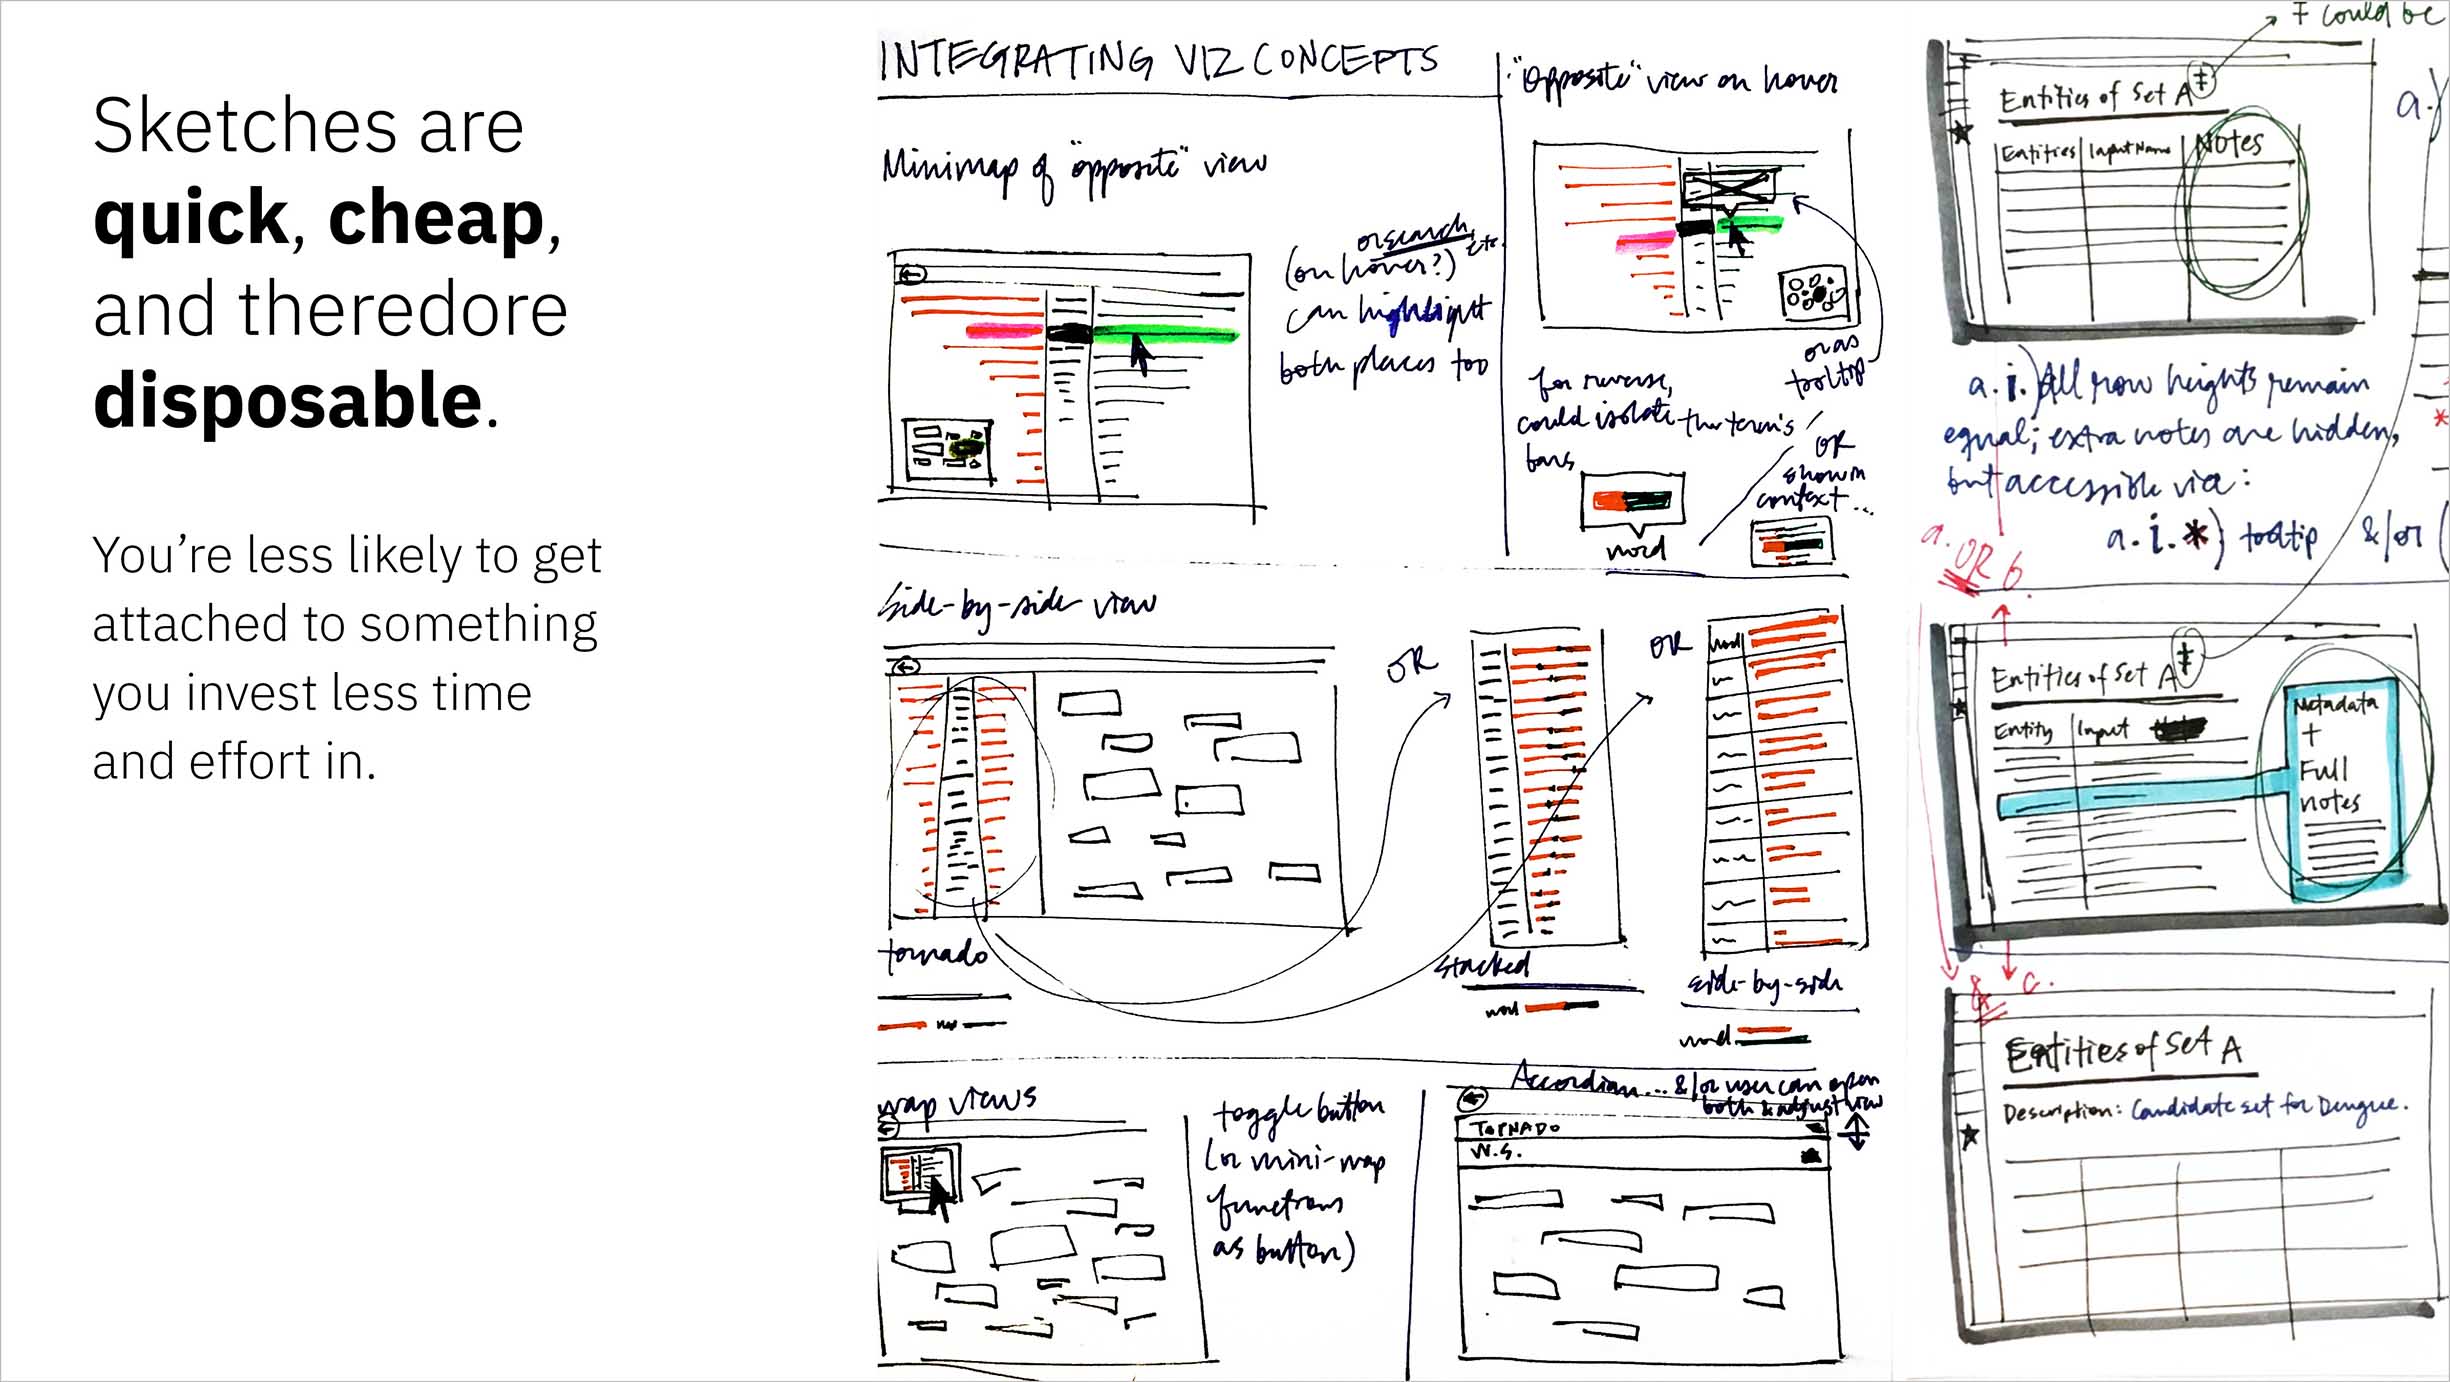 Sketches are
quick, cheap,
and theredore
disposable.
You’re less likely to get
attached to something
you invest less time
and effort in.
INTEGRATING VIZ CONCEPTS
Minimap of "opposite" view
or search, etc.
(on hover?)
can highlight
both places too
"Opposite" view on hover
or as
tooltip
for reverse,
could isolate the term's
bars
word
OR
show in
context...
Side-by-side view
OR
OR
word
tornado
stacked
word
side-by-side
word
map views
toggle button
(or mini-map
functions
as button)
Accordian... &/or user can open
both & adjust view
TORNADO
W.S.
‡ could be
Entities of Set A ‡
Entities Input Name Notes
a.)
a.i.) All row heights remain
equal; extra notes are hidden,
but accessible via:
a.i.*) tooltip &/or (
a. OR b.
Entities of Set A ‡
Entity Input
Metadata
+
Full
notes
& c.
Entities of Set A
Description: Candidate set for Dengue.